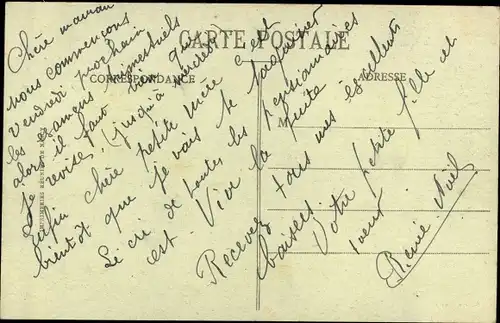 CARTE POSTALE
CORRESPONDANCE
ADRESSE
Chère maman
nous commençons
vendredi prochain
les examens trimestriels
alors il faut bien que
je revise, (jusqu'à
Enfin chère petite mère c'est
bientôt que je vais te
Le cri de toutes les pensionnaires
est. Vive la
Recevez tous mes excellents
baisers.
Votre petite fille et
soeur
Renée Noël